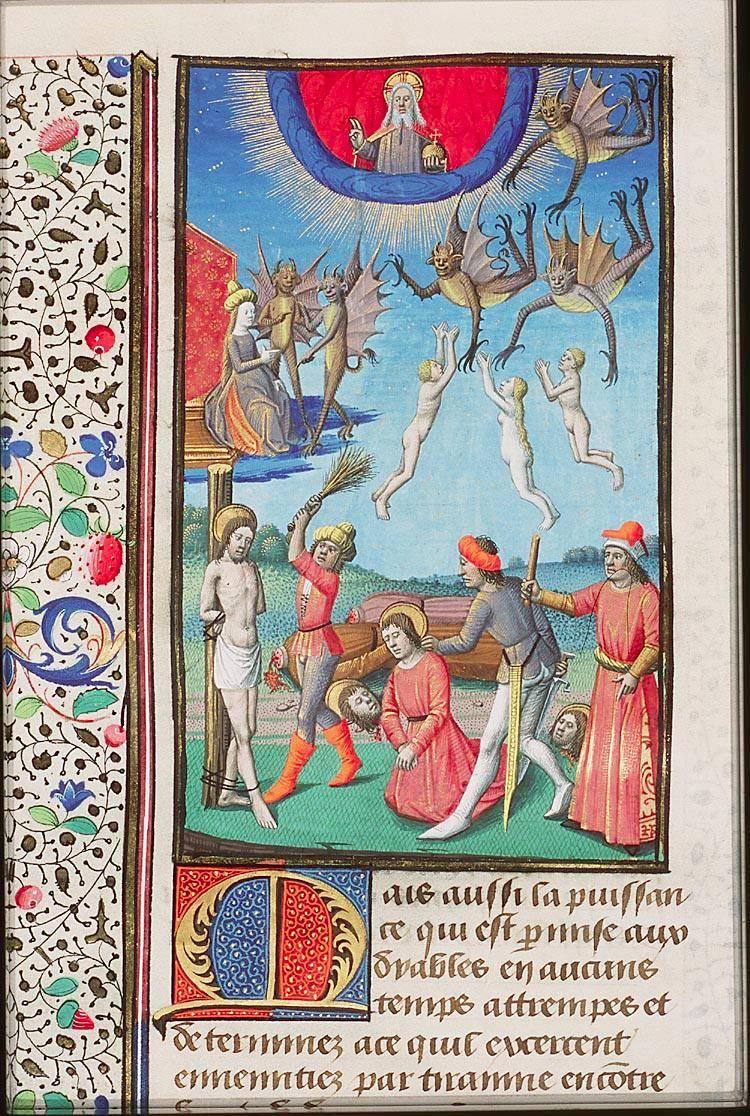 Mais aussi la puissan
ce qui est pmise aux
dyables en aucuns
temps attrempes et
determinez a ce quil excercent
ennemitiez par tirannie encōtre